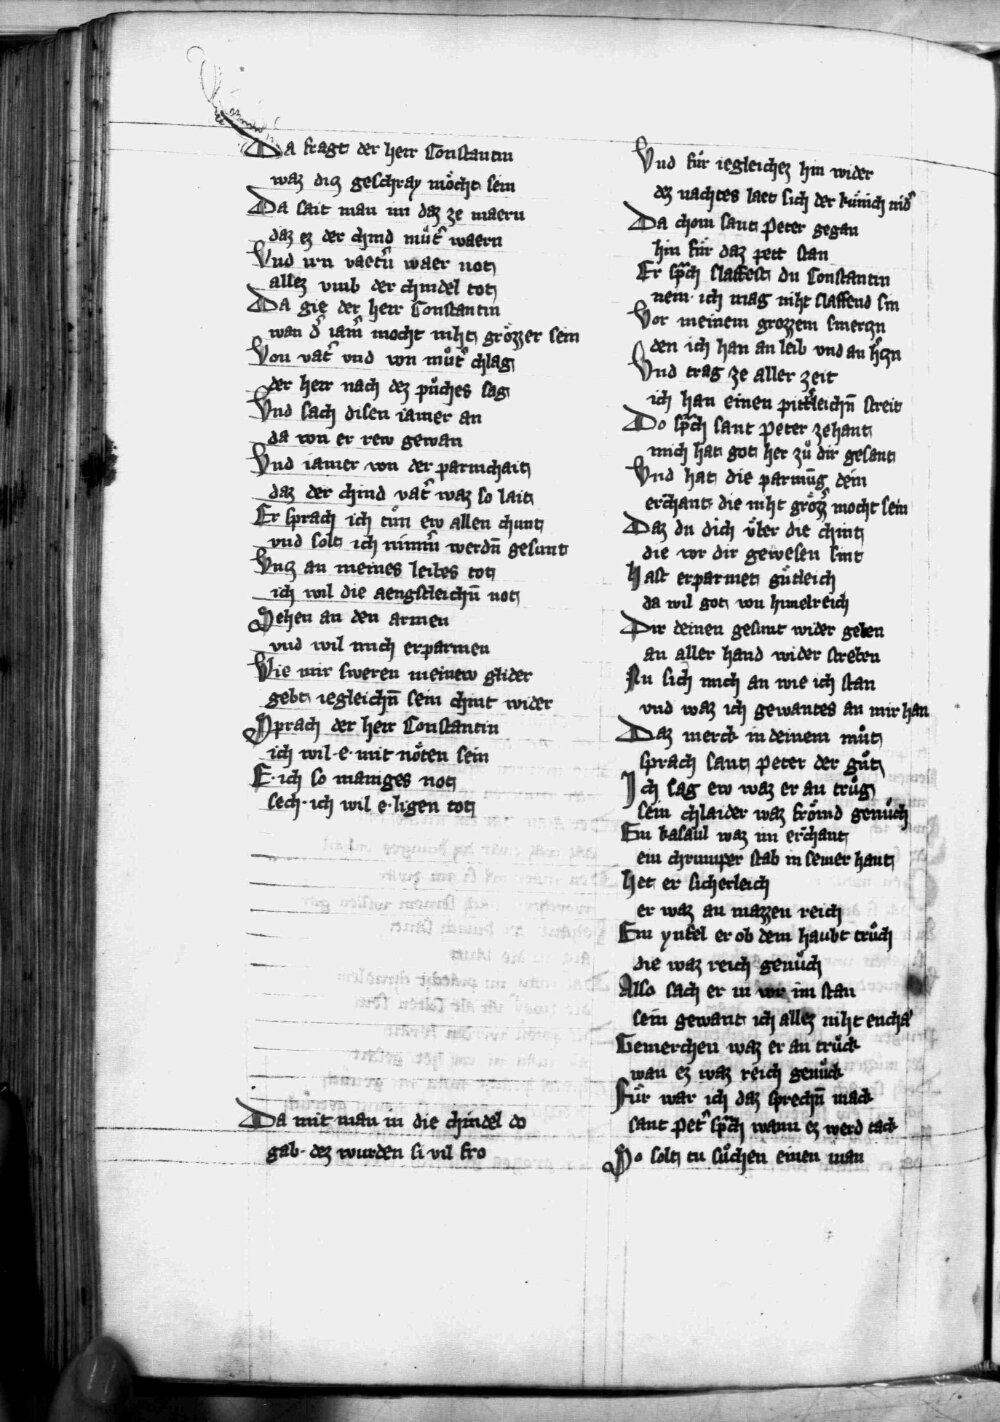 Da fragt der herr Constantin
waz diz geschray möcht sein
Da sait man im daz ze maern
daz ez der chind müt̉ waern
Vnd irn vaet̉n waer not
allez vmb der chindel tot
Da gie der herr Constantin
wan d̉ iam̉ mocht niht grözzer sein
Von vat̉ vnd von müt̉ chlag
der herr nach dez půches sag
Vnd sach disen iamer an
da von er rew gewan
Vnd iamer von der parmchait
daz der chind vat̉ waz so lait
Er sprach ich tůn ew allen chunt
vnd solt ich nim̄m̉ werdn̄ gesunt
Vnz an meines leibes tot
ich wil die aengstleichn̄ not
Sehen an den armen
vnd wil mich erparmen
Wie mir sweren meinew glider
gebt iegleichn̄ sein chint wider
Sprach der herr Constantin
ich wil · e · mit nöten sein
E · ich so maniges not
sech · ich wil e · ligen tot
Da mit man in die chindel do
gab · dez wurden si vil fro
Vnd für iegleichez hin wider
dez nachtes laet sich der künich nid̉
Da chom sant Peter gegan
hin für daz pett stan
Er sp̄ch slaffest du Constantin
nein · ich mag niht slaffend sin
Vor meinem grozzem smerczn
den ich han an leib vnd an h̉czn
Vnd trag ze aller zeit
ich han einen pitt̉leichn̄ streit
Do sp̄ch sant Peter zehant
mich hat got her zů dir gesant
Vnd hat die parmūg dein
erchant die niht grözz̉ mocht sein
Daz du dich über die chint
die vor dir gewesen sint
Hast erparmet gütleich
da wil got von himelreich
Dir deinen gesunt wider geben
an aller hand wider streben
Nu sich mich an wie ich stan
vnd waz ich gewantes an mir han
Daz merck in deinem můt
sprach sant Peter der gůt
Ich sag ew waz er an trůg
sein chlaider waz frömd genůch
Ein kasaul waz im erchant
ein chrumper stab in seiner hant
Het er sicherleich
er waz an mazzen reich
Ein ynfel er ob dem haubt trůch
die waz reich genůch
Also sach er in vor im stan
sein gewant ich allez niht encha͛
Gemerchen waz er an trůck
wan ez waz reich genůck
Für war ich daz sprechn̄ mack
sant pet̉ sp̄ch wann ez werd tack
So solt tu sůchen einen man